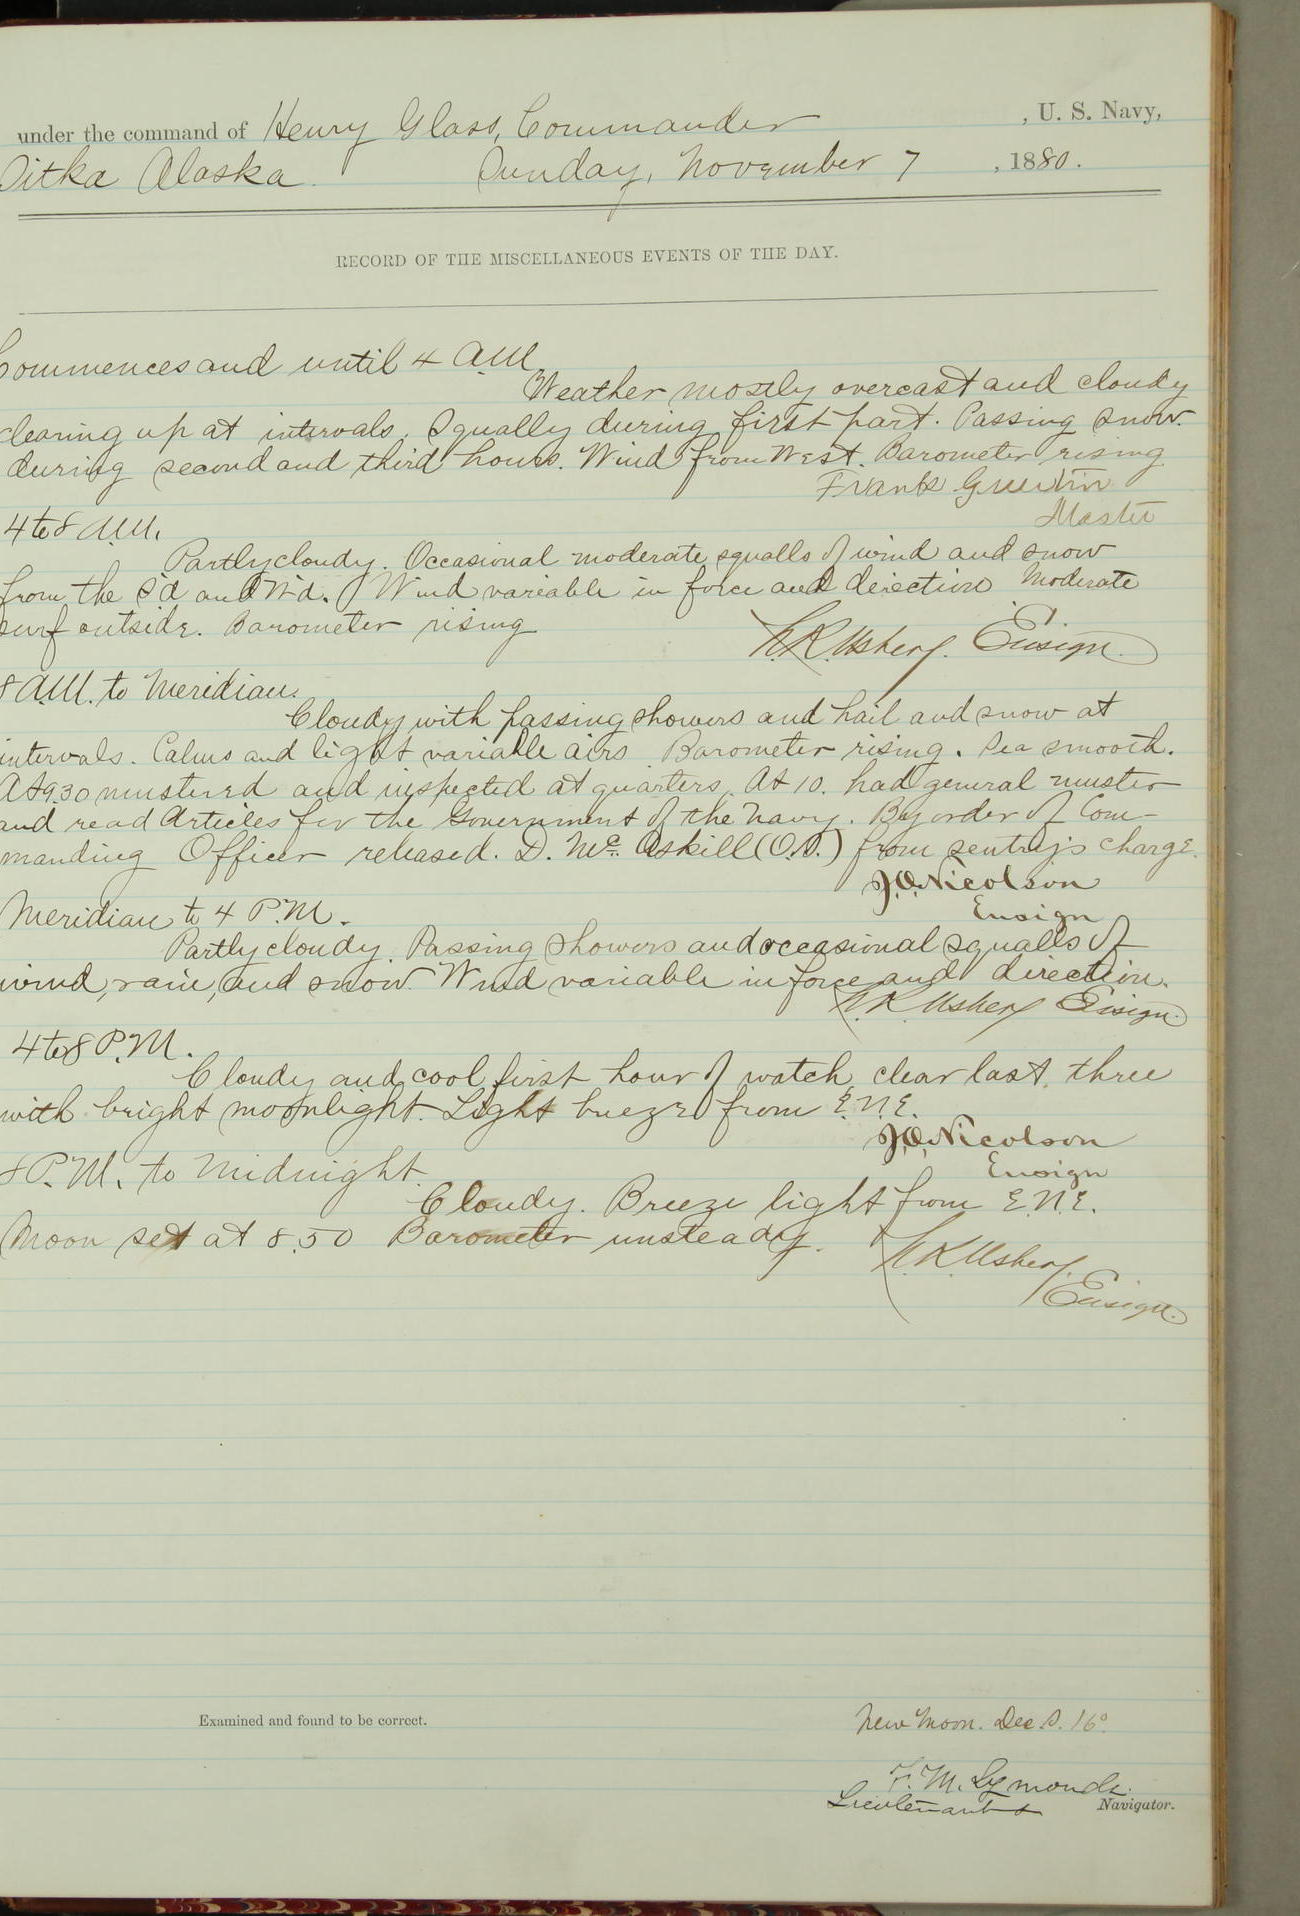 under the command of Henry Glass, Commander , U. S. Navy,
Sitka Alaska. Sunday, November 7 , 1880.
RECORD OF THE MISCELLANEOUS EVENTS OF THE DAY.
Commences and until 4 A.M.
Weather mostly overcast and cloudy
clearing up at intervals. Squally during first part. Passing snow
during second and third hours. Wind from West. Barometer rising
Frank
Master
4 to 8 A.M.
Partly cloudy. Occasional moderate squalls of wind and snow
from the S'd and W'd. Wind variable in force and direction Moderate
surf outside. Barometer rising
N.R. Usher, Ensign.
8 A.M. to Meridian.
Cloudy with passing showers and hail and snow at
intervals. Calms and light variable airs Barometer rising. Sea smooth.
At 9.30 mustered and inspected at quarters. At 10. had general muster
and read Articles for the Government of the Navy. By order of Com-
manding Officer released. D. Mc. Askill (O.S.) from sentry's charge.
J.O. Nicolson
Ensign
Meridian to 4 P.M.
Partly cloudy. Passing showers and occasional squalls of
wind, rain, and snow. Wind variable in force and direction.
N.R. Usher, Ensign.
4 to 8 P.M.
Cloudy and cool first hour of watch, clear last three
with bright moonlight. Light breeze from E.N.E.
J.O. Nicolson
Ensign
8 P.M. to Midnight.
Cloudy. Breeze light from E.N.E.
Moon set at 8.50 Barometer unsteady.
N.R. Usher,
Ensign.
Examined and found to be correct.
New Moon. Dec. S. 16°.
F. M. Symonds.
Lieutenant & Navigator.